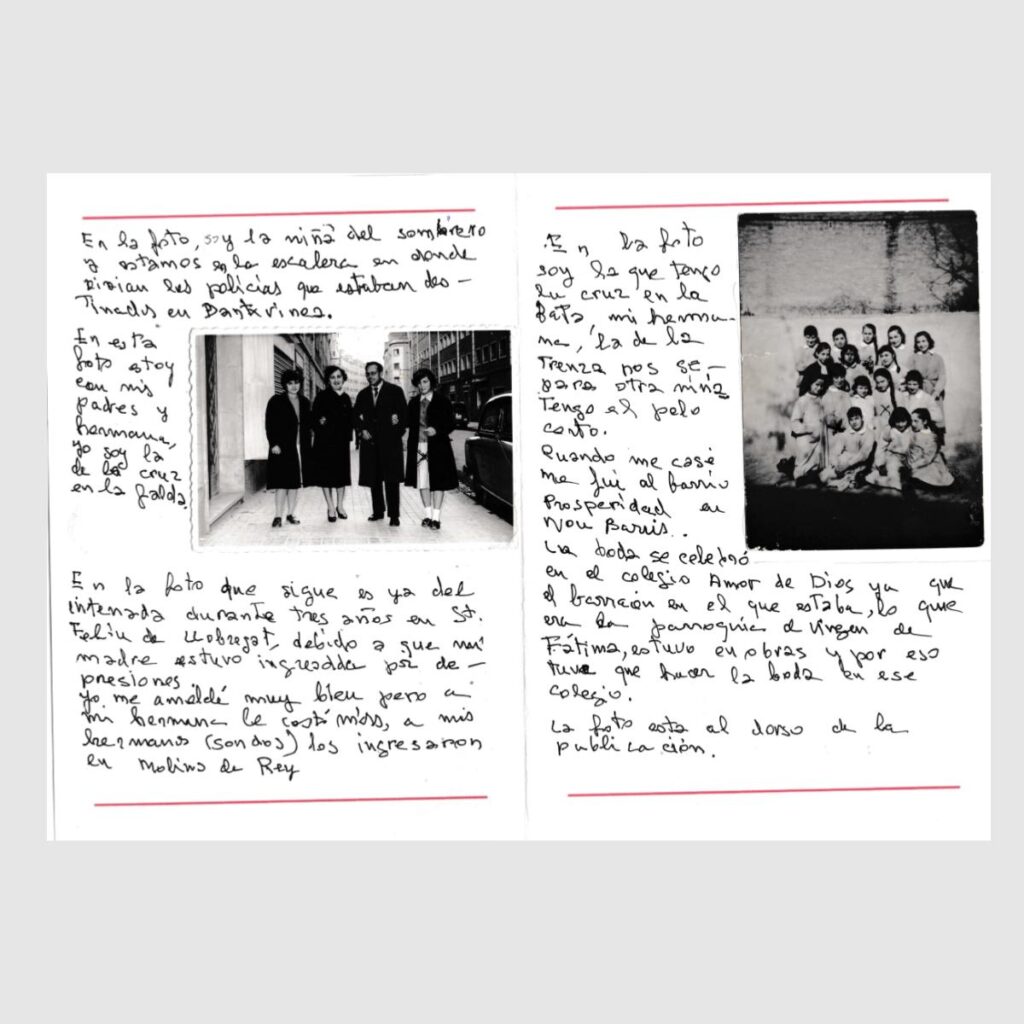 En la foto, soy la niña del sombrero
y estamos en la escalera en donde
vivian los policías que estaban des-
tinados en Can Tunis.
En esta
foto estoy
con mis
padres y
hermana,
yo soy la
de la cruz
en la falda.
En la foto que sigue es ya del
internada durante tres años en St.
Feliu de Llobregat, debido a que mi
madre estuvo ingresada por de-
presiones.
yo me amoldé muy bien pero a
mi hermana le costó más, a mis
hermanos (son dos) los ingresaron
en Molins de Rey
.En la foto
soy la que tengo
la cruz en la
Bata, mi herma-
na, la de la
trenza nos se-
para otra niña
Tengo el pelo
corto.
Quando me casé
me fui al barrio
Prosperidad en
Nou Barris..
La boda se celebró
en el colegio Amor de Dios ya que
el barracón en el que estaba, lo que
era la parroquia d Virgen de
Fátima, estuvo en obras y por eso
tuve que hacer la boda en ese
colegio.
La foto esta al dorso de la
publicación.